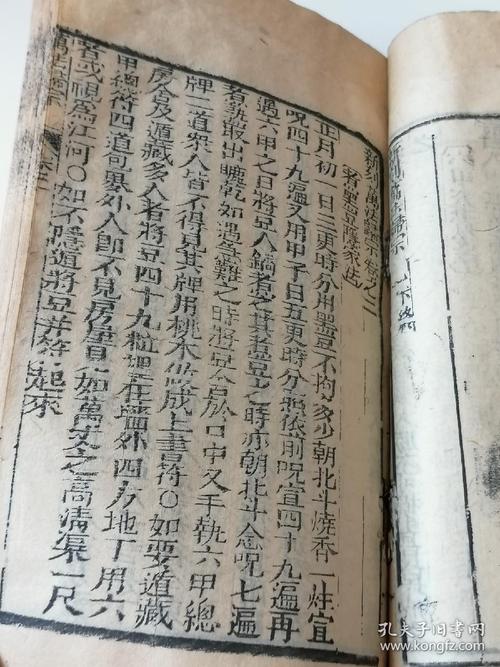 新刻萬法歸宗卷之二
煮黑荳隱家法
正月初一日三更時分用黑荳不拘多少朝北斗燒香一炷宣
呪四十九遍又用甲子日五更時分照依前呪宣四十九遍再
遇六甲之日將荳入鍋煮之其煮荳之時亦朝北斗念呪七遍
煮熟取出曬乾如遇急難之時將荳含於口中又手執六甲總
牌二道衆人皆不得見其牌用桃木做成上書符〇如要遁藏
房舍及遁藏多人者將荳四十九粒埋在牆外四方地下用六
甲總符四道
外人即不見房屋只如萬丈之高清渠一尺
者或視爲江河〇如不隱遁將荳并符起來
萬法歸宗
卷二
孔夫子旧书网
www.kongfz.com